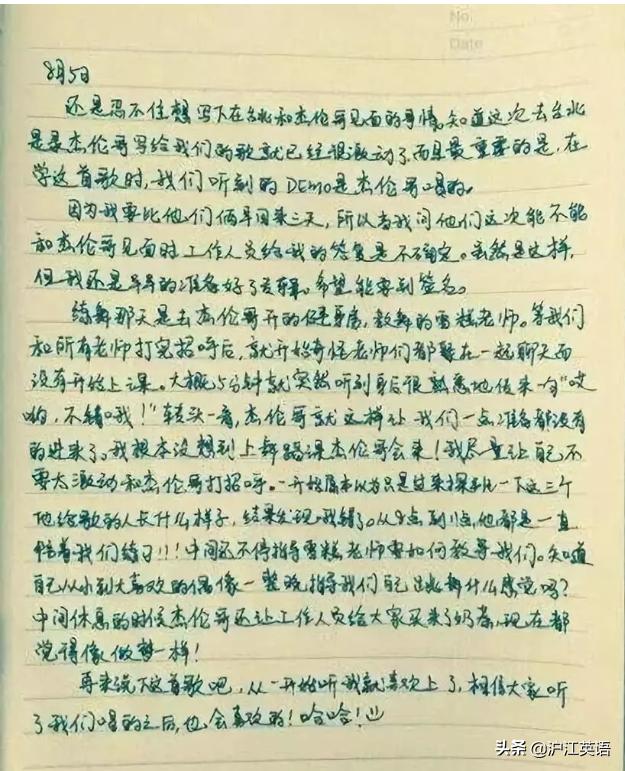 No.
Date
8月5日
还是忍不住想写下在台北和杰伦哥见面的事情。知道这次去台北
是录杰伦哥写给我们的歌就已经很激动了,而且最重要的是,在
学这首歌时,我们听到的DEMO是杰伦哥唱的。
因为我要比他们俩早回来三天,所以当我问他们这次能不能
和杰伦哥见面时,工作人员给我的答复是不确定。虽然是这样,
但我还是早早的准备好了专辑。希望能要到签名。
练舞那天是去杰伦哥开的健身房,教舞的雪糕老师。等我们
和所有老师打完招呼后,就开始奇怪老师们都聚在一起聊天而
没有开始上课。大概5分钟就突然听到身后很熟悉地传来一句"哎
哟,不错哦!"转头一看,杰伦哥就这样让我们一点准备都没有
的进来了。我根本没想到上舞蹈课杰伦哥会来!我尽量让自己不
要太激动和杰伦哥打招呼。一开始原本以为只是过来探班一下这三个
他给歌的人长什么样子,结果发现我错了。从9点到1点,他都是一直
陪着我们练习!!!中间还不停指导雪糕老师要如何教导我们。知道
自己从小到大喜欢的偶像一整晚指导我们自己跳舞什么感觉吗?
中间休息的时候杰伦哥还让工作人员给大家买来了奶茶,现在都
觉得像做梦一样!
再来说下这首歌吧,从一开始听我就喜欢上了,相信大家听
了我们唱的之后,也会喜欢的!哈哈!
头条 @沪江英语